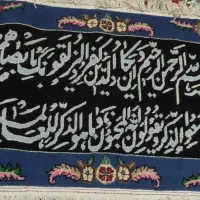 بسم الله الرحمن الرحیم و ان یکاد الذین کفروا لیزلقونک بابصارهم
سمعوا الذکر و یقولون انه لمجنون و ما هو الا ذکر للعالمین